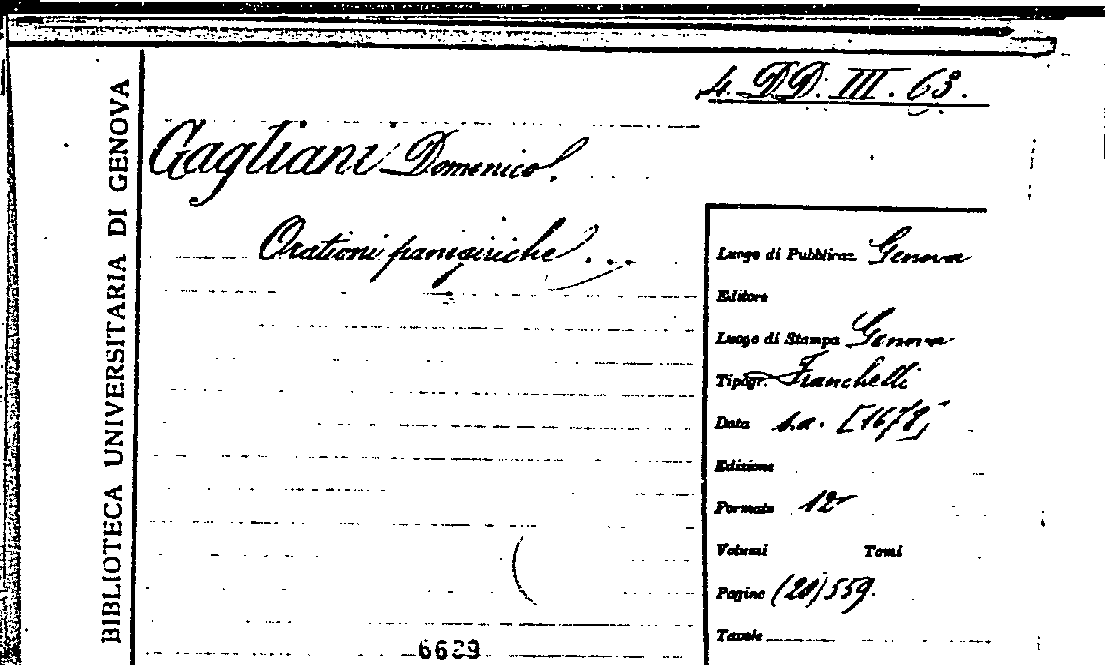 4. DD. III. 63.
BIBLIOTECA UNIVERSITARIA DI GENOVA
Gagliani Domenico.
Orationi panegiriche ...
Luogo di Pubblicaz. Genova
Editore
Luogo di Stampa Genova
Tipogr. Franchelli
Data s.a. [1678]
Edizione
Formato 12°
Volumi Tomi
Pagine (20) 559.
Tavole
6629